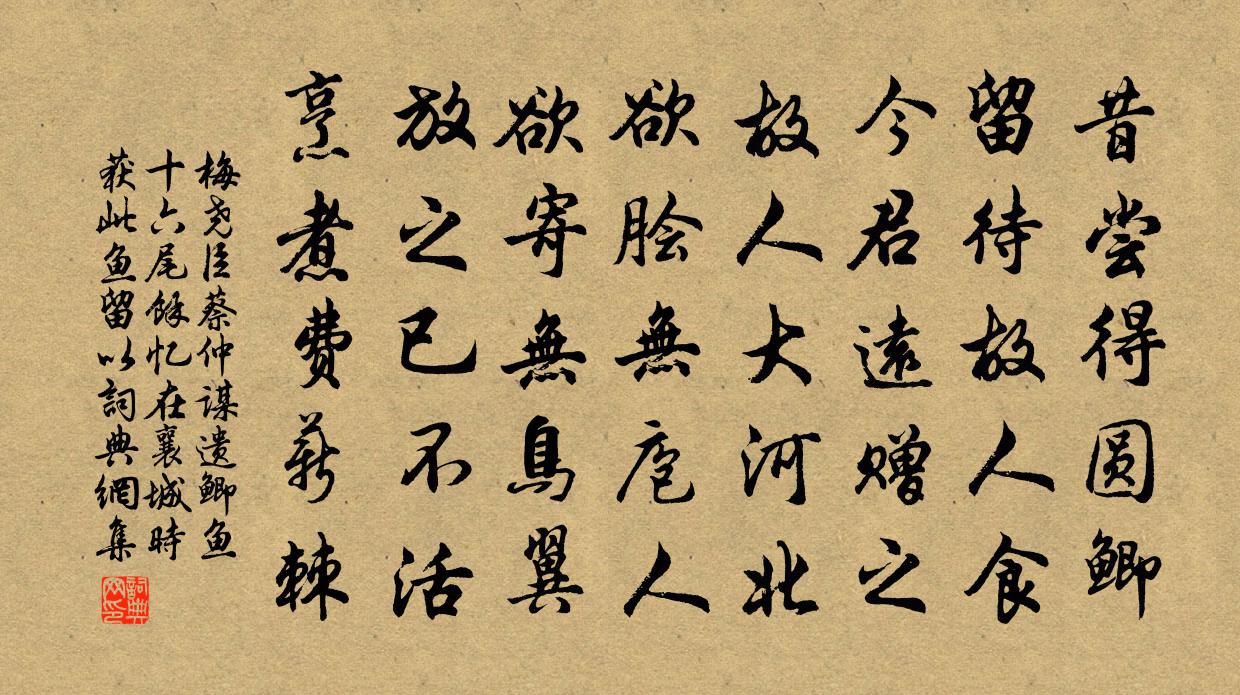 昔尝得圆鲫
留待故人食
今君遠赠之
故人大河北
欲脍無庖人
欲寄無鳥翼
放之已不活
烹煮費薪棘
梅尧臣蔡仲谋遗鲫鱼
十六尾馀忆在襄城時
获此鱼留以詞典網集
詞典网印